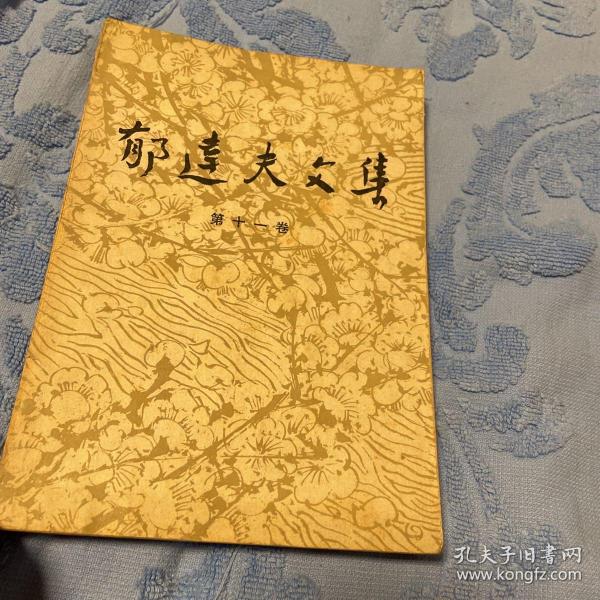 郁達夫文集
第十一卷
孔夫子旧书网
www.kongfz.com